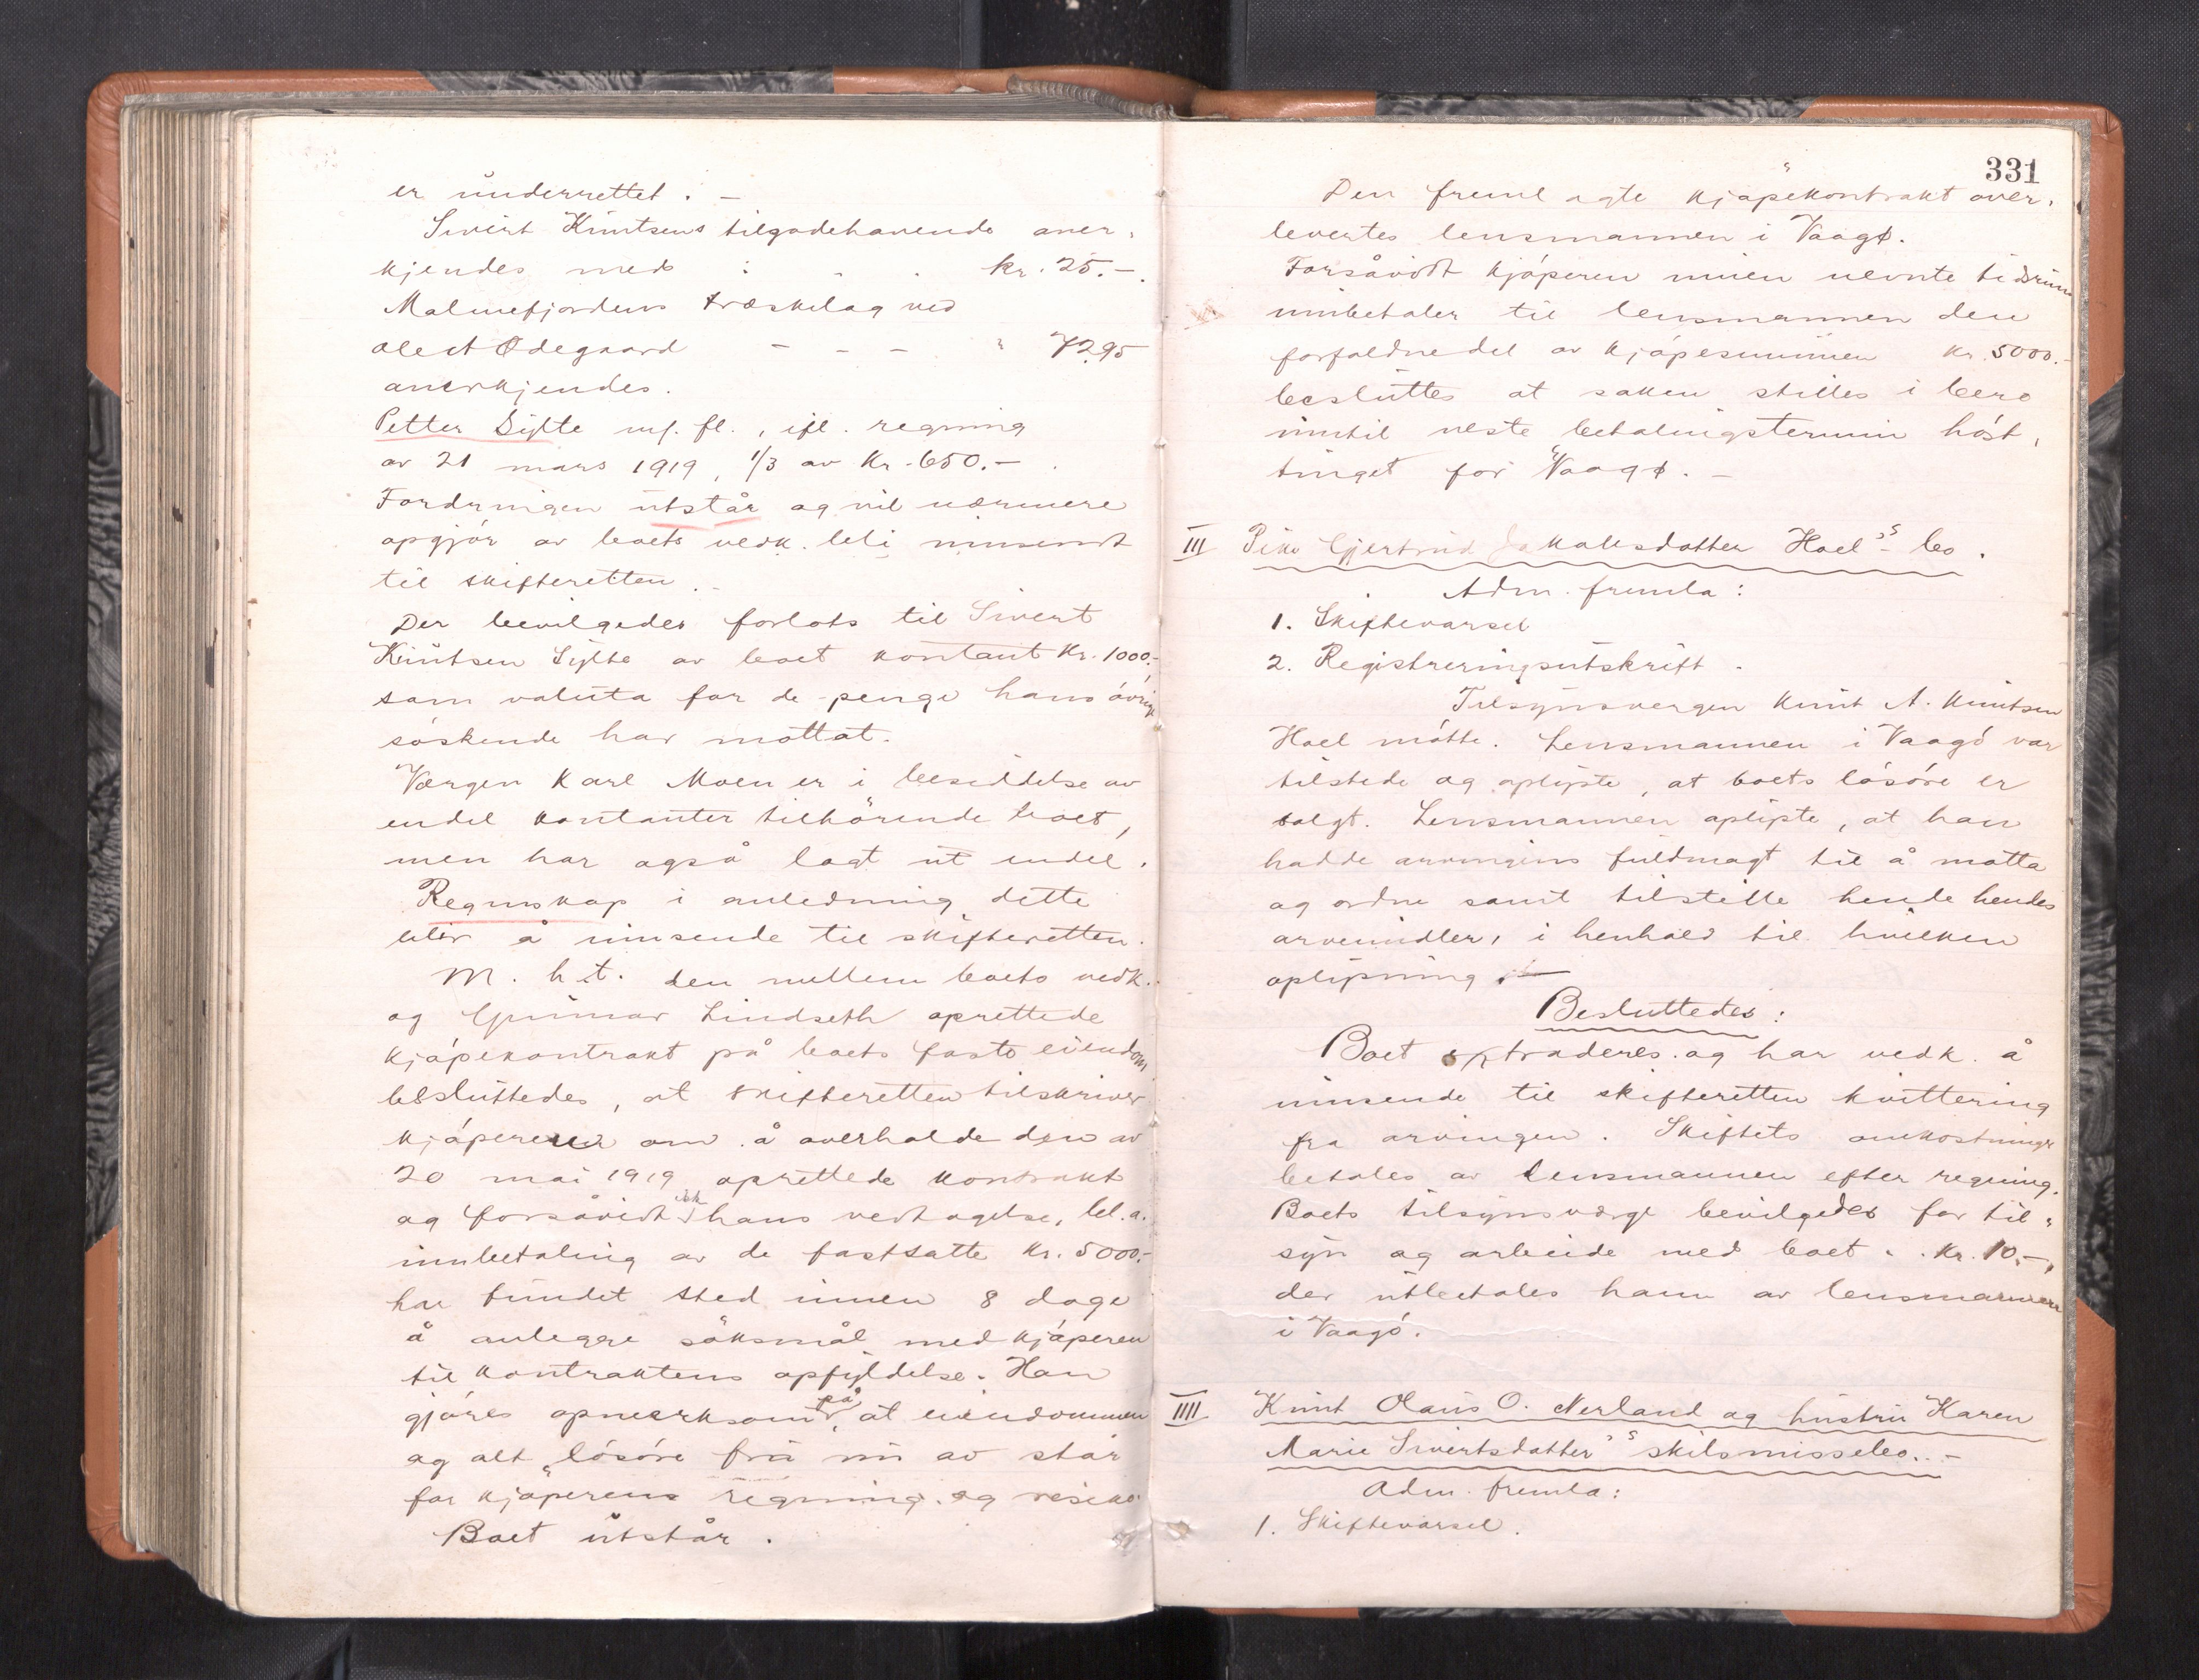 er underrettet. –
Sivert Knutsens tilgodehavende aner-
kjendes med : - . kr. 25.–
Malmefjordens træskelag ved
Olest Ødegaard – – – " 72.95
anerkjendes.
Petter Sylte m. fl., ifl. regning
av 21 mars 1919, 1/3 av Kr. 650.– .
Fordringen utstår og vil nærmere
opgjör av boets vedk. bli innsendt
til skifteretten. –
Der bevilgedes forlots til Sivert
Knutsen Sylte av boet kontant Kr. 1000.–
som valuta for de penge hans övrige
söskende har mottat.
Værgen Karl Moen er i besiddelse av
endel kontanter tilhörende boet,
men har også lagt ut endel.
Regnskap i anledning dette
blir å innsende til skifteretten.
M. h. t. den mellem boets vedk.
og Gunnar Lindseth oprettede
kjöpekontrakt på boets faste eiendom
besluttedes, at skifteretten tilskriver
kjöperen om å overholde den av
20 mai 1919 oprettede kontrakt
og forsåvidt ikk hans vedtagelse, bl. a.
innbetaling av de fastsatte Kr. 5000.–
har fundet sted innen 8 dage
å anlegge söksmål med kjöperen
til kontraktens opfyldelse. Han
gjöres opmerksom på, at eiendommen
og alt lösöre fra nu av står
for kjöperens regning og risiko.
Boet utstår.
331
Den fremlagte kjöpekontrakt over-
levertes lensmannen i Vaagø.
Forsåvidt kjöperen innen nevnte tidsrum
innbetaler til lensmannen den
forfaldne del av kjöpesummen Kr. 5000.–
besluttes at saken stilles i bero
inntil neste betalingstermin höst-
tinget for Vaagø. –
III Pike Gjertrud Jakobsdatter Hoel's bo.
Adm. fremla:
1. Skiftevarsel
2. Registreringsutskrift.
Tilsynsvergen Knut A. Knutsen
Hoel mötte. Lensmannen i Vaagö var
tilstede og oplyste, at boets lösöre er
solgt. Lensmannen oplyste, at han
hadde arvingens fuldmagt til å motta
og ordne samt tilstille hende hendes
arvemidler, i henhold til hvilken
oplysning. –
Besluttedes:
Boet extraderes og har vedk. å
innsende til skifteretten kvittering
fra arvingen. Skiftets omkostninger
betales av lensmannen efter regning.
Boets tilsynsværge bevilgedes for til-
syn og arbeide med boet . . Kr. 10.–,
der utbetales ham av lensmannen
i Vaagö.
IIII Knut Olaus O. Nerland og hustru Karen
Marie Sivertsdatter's skilsmissebo. –
Adm. fremla:
1. Skiftevarsel.